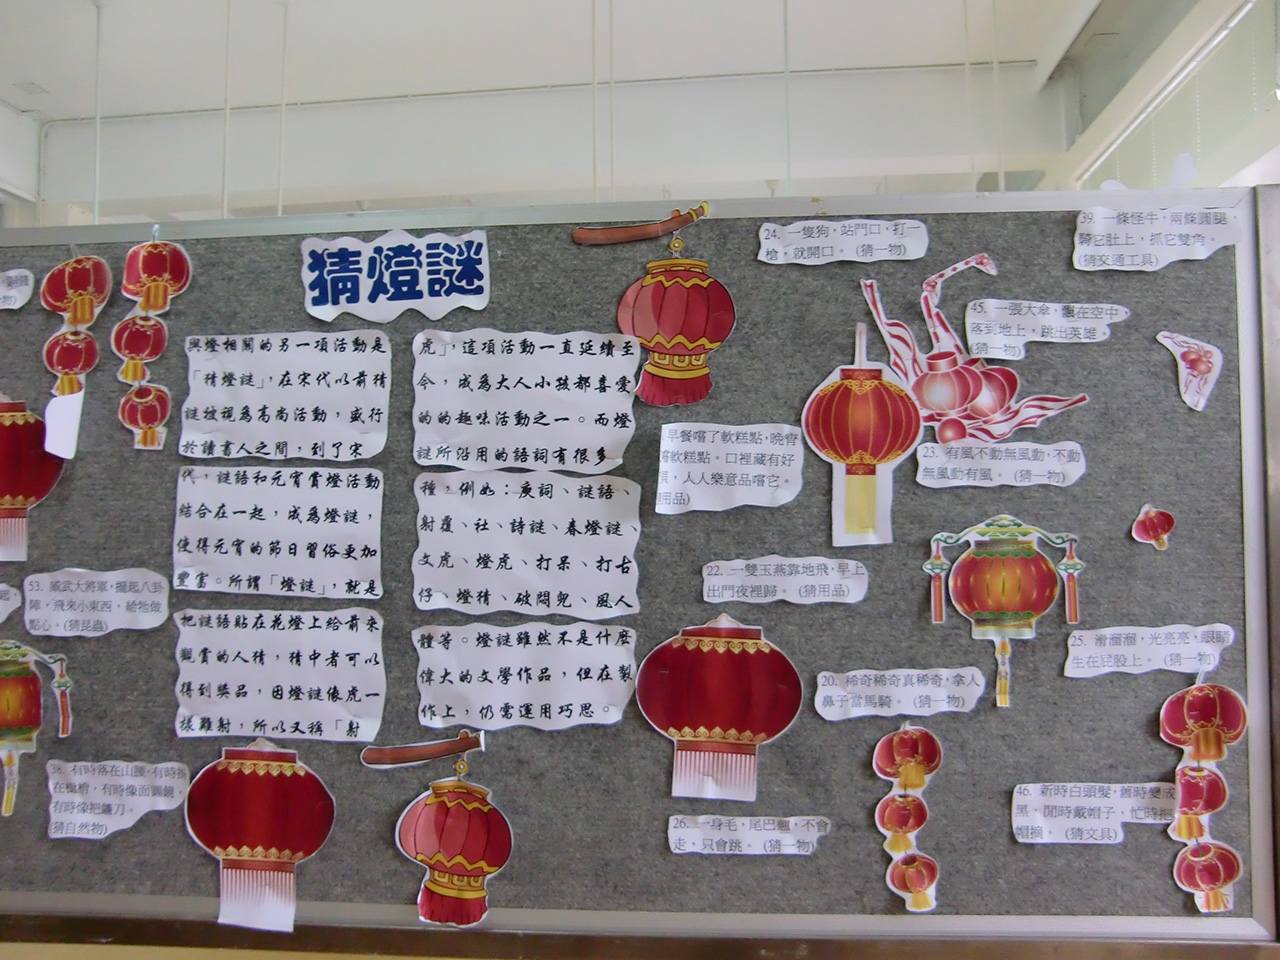 猜燈謎
與燈相關的另一項活動是
「猜燈謎」,在宋代以前猜
謎被視為高尚活動,盛行
於讀書人之間,到了宋
代,謎語和元宵賞燈活動
結合在一起,成為燈謎,
使得元宵的節日習俗更加
豐富。所謂「燈謎」,就是
把謎語貼在花燈上給前來
觀賞的人猜,猜中者可以
得到獎品,因燈謎像虎一
樣難射,所以又稱「射
虎」,這項活動一直延續至
今,成為大人小孩都喜愛
的的趣味活動之一。而燈
謎所沿用的語詞有很多
種,例如:庾詞、謎語、
射覆、社、詩謎、春燈謎、
文虎、燈虎、打呆、打古
仔、燈猜、破悶兜、風人
體等。燈謎雖然不是什麼
偉大的文學作品,但在製
作上,仍需運用巧思。
53. 威武大將軍,擺起八卦
陣,飛來小東西,給牠做
點心。(猜昆蟲)
38. 有時落在山腰,有時掛
在樹梢,有時像面圓鏡,
有時像把鐮刀。
猜自然物)
24. 一隻狗,站門口,打一
槍,就開口。(猜一物)
39. 一條怪牛,兩條圓腿,
騎它肚上,抓它雙角。
(猜交通工具)
45. 一張大傘,飄在空中
落到地上,跳出英雄。
(猜一物)
早餐嚐了軟糕點,晚宵
嚐軟糕點。口裡藏有好
,人人樂意品嚐它。
用品)
23. 有風不動無風動,不動
無風動有風。(猜一物)
22. 一雙玉燕靠地飛,早上
出門夜裡歸。(猜用品)
20. 稀奇稀奇真稀奇,拿人
鼻子當馬騎。(猜一物)
25. 滑溜溜,光亮亮,眼睛
生在屁股上。(猜一物)
26. 一身毛,尾巴翹,不會
走,只會跳。(猜一物)
46. 新時白頭髮,舊時變成
黑,閒時戴帽子,忙時把
帽摘。(猜文具)